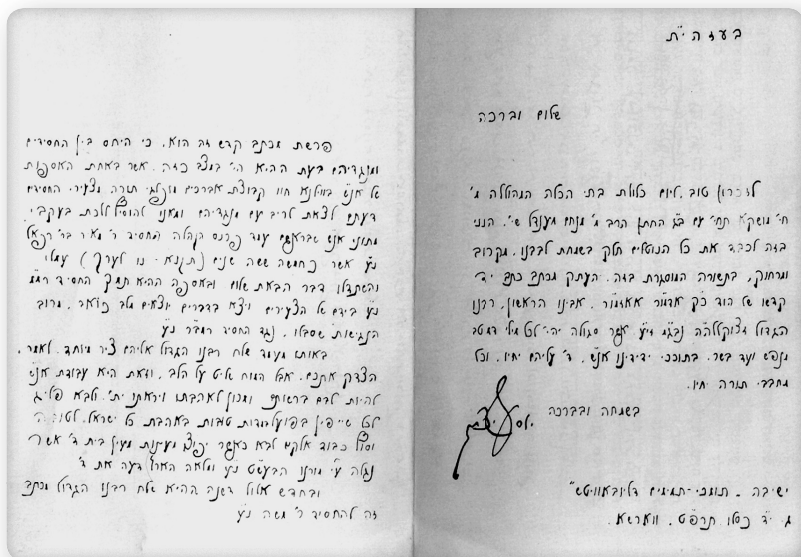 בעזהי״ת
שלום וברכה
לזכרון טוב. ליום כלולת בתי הכלה המהוללה מ׳
חי׳ מושקא תחי׳ עם ב״ג החתן הרב מ׳ מנחם מענדל שי׳. הנני
בזה לכבד את כל הנוטלים חלק בשמחת לבבנו, מקרוב
ומרחוק, בתשורה המוסגרת בזה. העתק מכתב כתב יד
קדשו של הוד כ״ק אדמו״ר אאזמו״ר. אבינו הראשון, רבנו
הגדול נבג״מ זי״ע אשר סגולה יהי׳ לכל מילי דמטב
מנפש ועד בשר. בתוככי ידידינו אנ״ש. ד׳ עליהם יחיו. וכל
מחבבי תורה יחיו.
בשמחה ובברכה
ישיבה - תומכי-תמימים דליובאוויטש״
ג׳ י״ד כסלו תרפ״ט. ווארשא.
פרשת מכתב קדש זה הוא. כי היחס בין החסידים
ומנגדיהם בעת ההיא הי׳ במצב כזה. אשר באחת האסיפות
של אנ״ש בווילנא חוו קבוצת אברכים מופלגי תורה מצעירי החסידים
דעתם לצאת לריב עם מנגדיהם ומאנו להוסיף ללכת בעקבי
מתוני אנ״ש שבראשם עמד פרנס הקהלה החסיד ר׳ מאיר בר׳ רפאל
נ״ע אשר כחמשה ששה שנים (תקנא - נו לערך) עמלו
והשתדלו דבר הבאת שלום ובאספה ההיא תמך החסיד
נ״ע בידם של הצעירים ויצא בדברים יוצאים מלב כואב. מרוב
הנגישות שסבלו. נגד החסיד רמב״ר נ״ע
באותו מעמד שלח רבנו הגדול אליהם ציר מיוחד. לאמר.
הצדק אתכם. אבל המוח שליט על הלב. וזאת היא עבודת אנ״ש
להיות לבם ברשותם ומכון לאהבתו ויראתו ית׳. ולבא
לכל טובות באהבת כל ישראל.
וסוף כבוד אלקים לבא כאשר יפוצו מעינות מעין בית ד׳ אשר
נגלה ע״י מורנו הבעש״ט נ״ע ומלאה הארץ דעה את ד׳
ובחדש אלול דשנה ההיא שלח רבנו הגדול מכתב
זה להחסיד ר׳ משה נ״ע